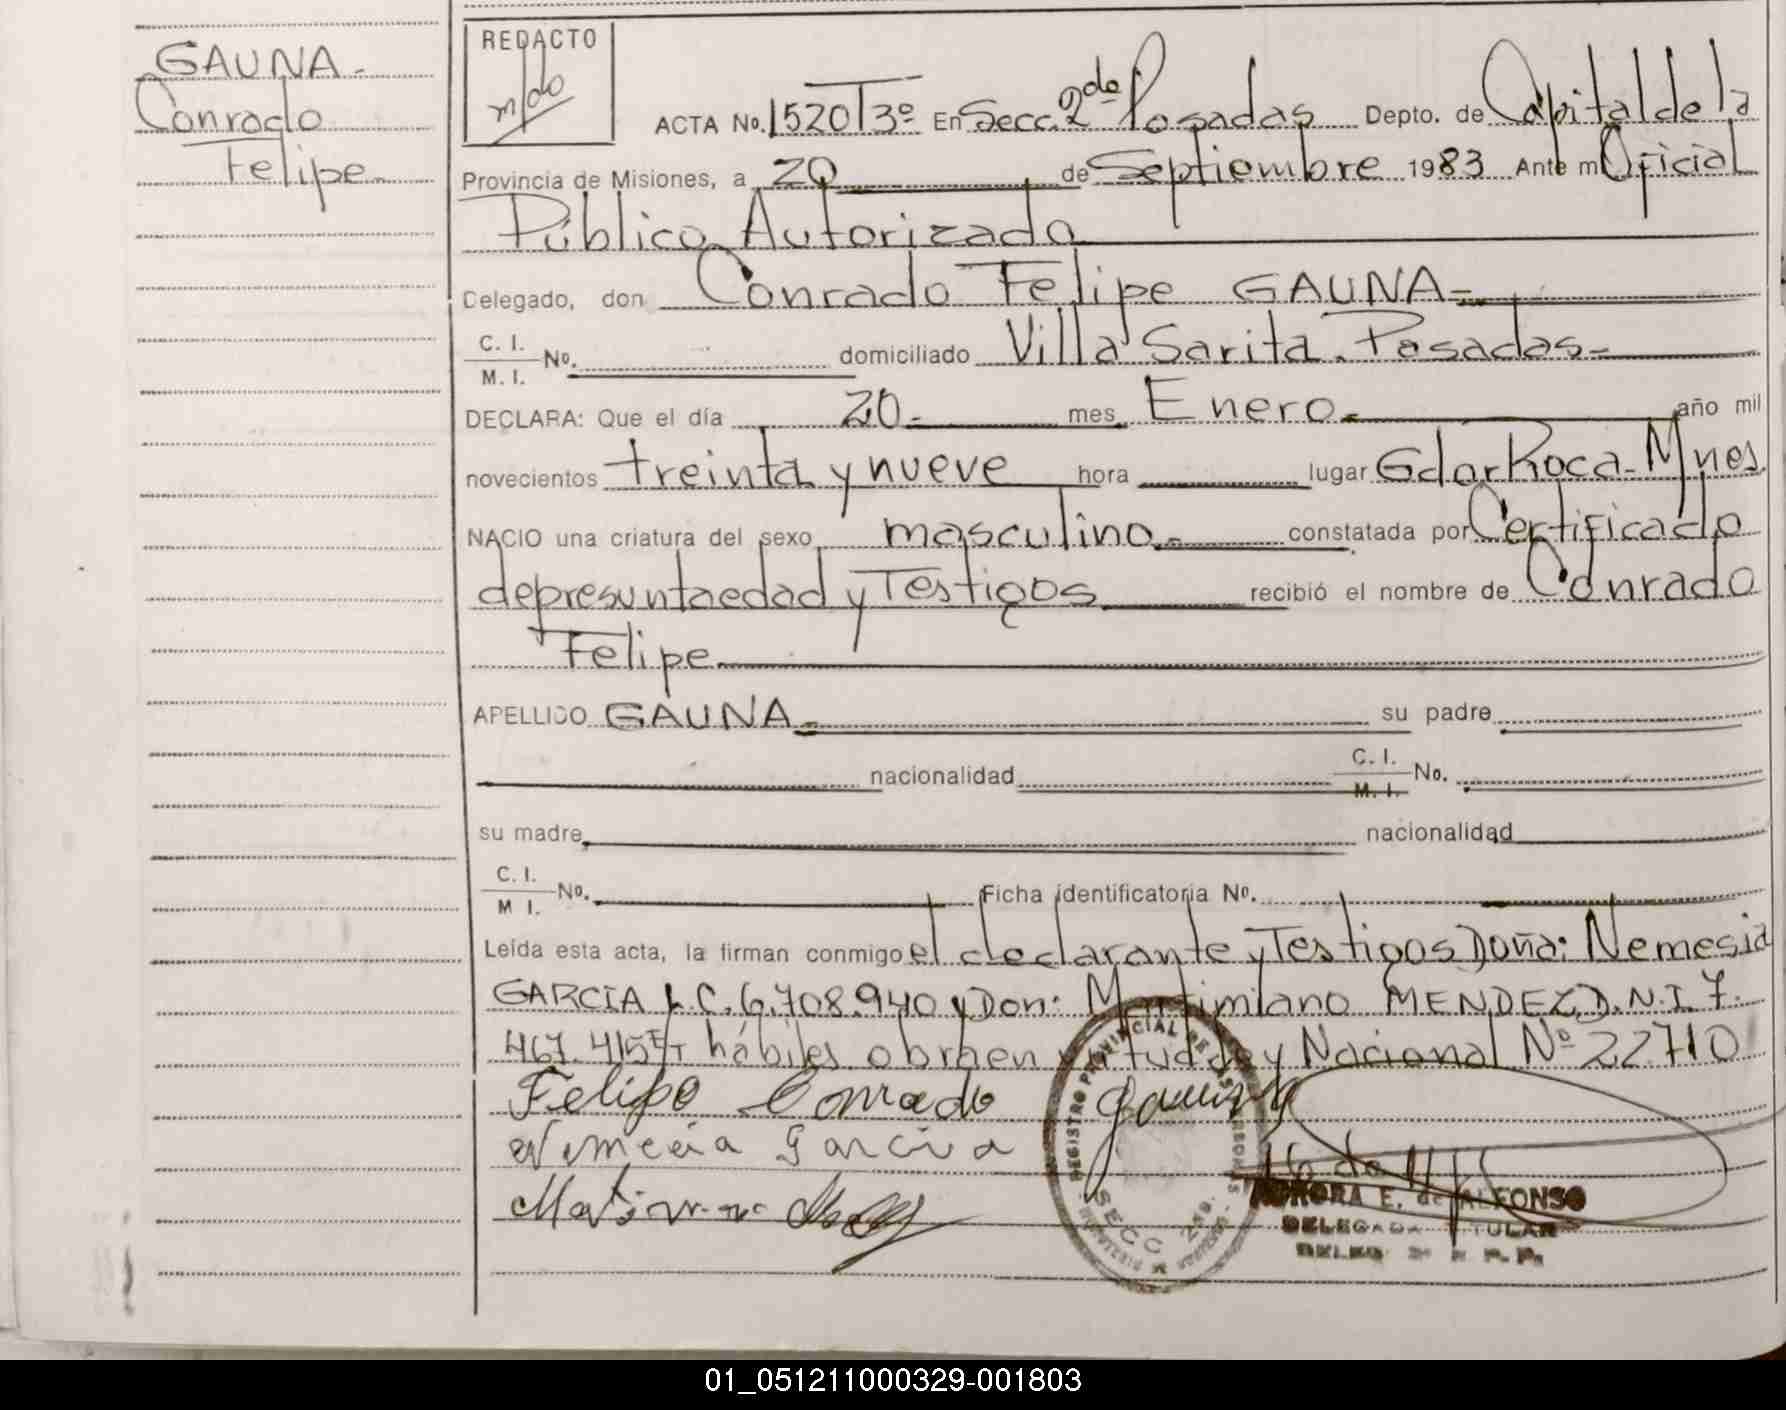 GAUNA.
Conrado
Felipe
REDACTO
m/do
ACTA No. 1520 T3º En Secc. 2da Posadas Depto. de Capital de la
Provincia de Misiones, a 20 de Septiembre 1983 Ante mi Oficial
Público Autorizado
Delegado, don Conrado Felipe GAUNA
C. I.
M. I. No. domiciliado Villa Sarita. Posadas
DECLARA: Que el día 20 mes Enero año mil
novecientos treinta y nueve hora lugar Gdor Roca. Mnes
NACIO una criatura del sexo masculino constatada por Certificado
de presunta edad y Testigos recibió el nombre de Conrado
Felipe
APELLIDO GAUNA su padre
nacionalidad C. I.
M. I. No.
su madre nacionalidad
C. I.
M I. No. Ficha identificatoria No.
Leída esta acta, la firman conmigo el declarante y Testigos Doña: Nemesia
GARCIA L.C. 6.708.940 y Don: Martimiano MENDEZ D.N.I 7.
467.415 hábiles obraen Ley Nacional Nº 22710
Felipo Conrado Gauna
Nemecia Garcia
REGISTRO PROVINCIAL DE LAS PERSONAS
SECC 2da.
AURORA E. de ALFONSO
DELEGADA TITULAR
01_051211000329-001803